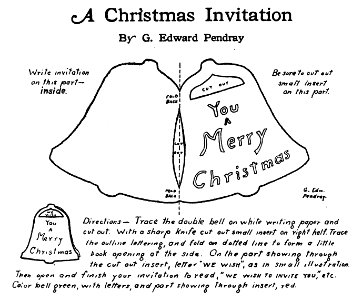 A Christmas Invitation
By G. Edward Pendray
Write invitation
on this part—
inside.
Be sure to cut out
small insert
on this part.
CUT OUT
FOLD
BACK
You
A
Merry
Christmas
CUT
OUT
FOLD
BACK
G. Edw.
Pendray.
You
A
Merry
Christmas
Directions— Trace the double bell on white writing paper and
cut out. With a sharp knife cut out small insert on right half. Trace
the outline lettering, and fold on dotted line to form a little
book opening at the side. On the part showing through
the cut out insert, letter "WE WISH", as in small illustration.
Then open and finish your invitation to read, "WE WISH TO INVITE YOU," etc.
Color bell green, with letters, and part showing through insert, red.